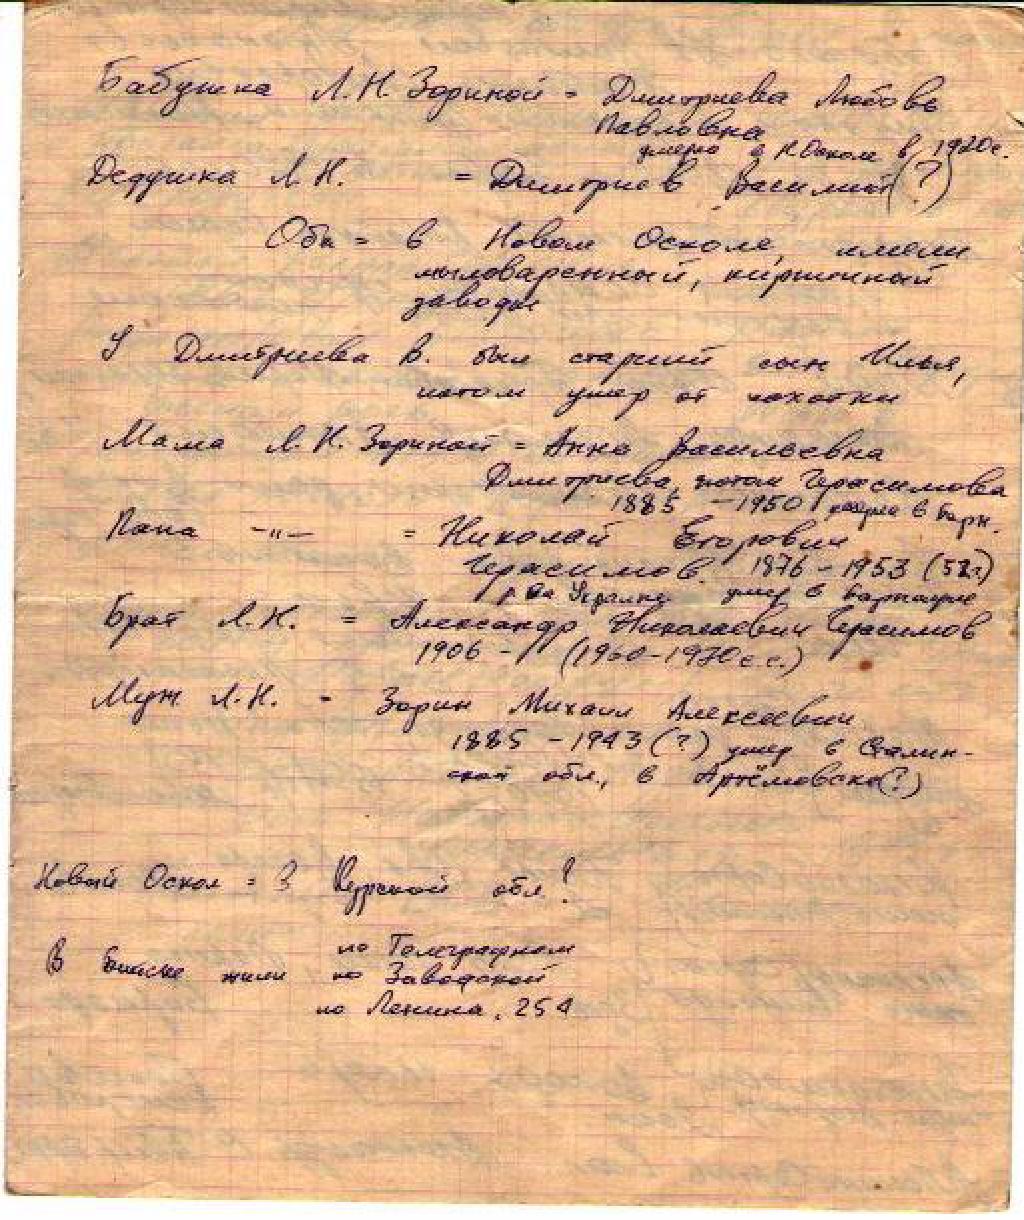 Бабушка Л.Н. Зориной = Дмитриева Любовь
Павловна
умерла в Н. Осколе в 1920г.
Дедушка Л.Н. = Дмитриев Василий (?)
Оба = в Новом Осколе, имели
мыловаренный, кирпичный
заводы
У Дмитриева В. был старший сын Илья,
потом умер от чахотки
Мама Л.Н. Зориной = Анна Васильевна
Дмитриева, потом Герасимова
1885 - 1950 в Барн.
Папа -"- = Николай Егорович
Герасимов. 1876 - 1953 (52?)
р. на Украине умер в Барнауле
Брат Л.Н. = Александр Николаевич Герасимов
1906 - (1960-1970 г.г.)
Муж Л.Н. - Зорин Михаил Алексеевич
1885 - 1943 (?) умер в Сталин-
ской обл., в Артёмовске (?)
Новый Оскол = ? Курской обл?
по Телеграфном
В Бийске жили по Заводской
по Ленина, 254